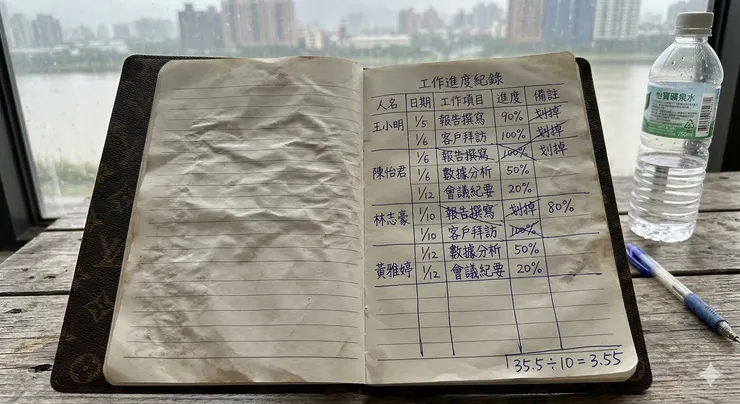 工作進度紀錄
人名 日期 工作項目 進度 備註
王小明 1/5 報告撰寫 90% 划掉
1/6 客戶拜訪 100% 划掉
1/6 報告撰寫 100% 划掉
陳怡君 1/6 數據分析 50%
1/12 會議紀要 20%
林志豪 1/10 報告撰寫 划掉 80%
1/10 客戶拜訪 100%
1/12 數據分析 50%
黃雅婷 1/12 會議紀要 20%
135.5÷10=3.55
怡寶礦泉水
750ml